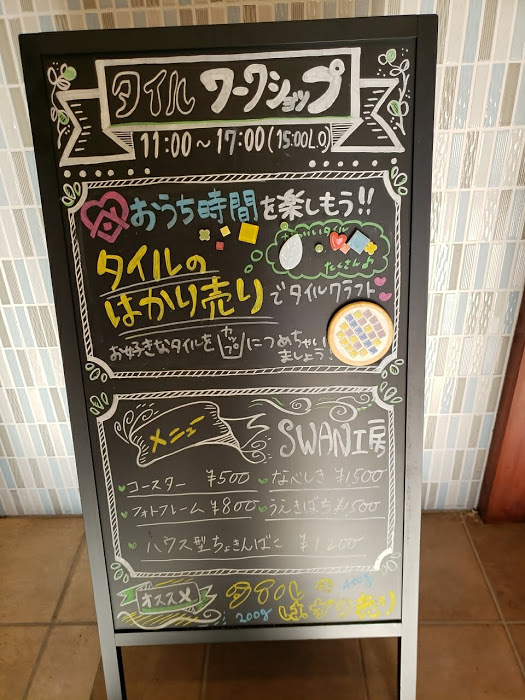 タイル ワークショップ
11:00～17:00(15:00L.O)
おうち時間を楽しもう!!
タイルの
はかり売り
でタイルクラフト
たくさん♪
お好きなタイルをカップにつめちゃいましょう!
メニュー
SWAN工房
コースター ¥500
なべしき ¥1500
フォトフレーム ¥800
うえきばち ¥1,500
ハウス型ちょきんばこ ¥1,200
オススメ
タイル
はかり売り
200g